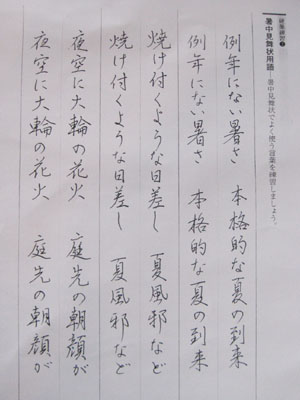 硬筆練習❷
暑中見舞状用語―暑中見舞状でよく使う言葉を練習しましょう。
例年にない暑さ　本格的な夏の到来
例年にない暑さ　本格的な夏の到来
焼け付くような日差し　夏風邪など
焼け付くような日差し　夏風邪など
夜空に大輪の花火　庭先の朝顔が
夜空に大輪の花火　庭先の朝顔が